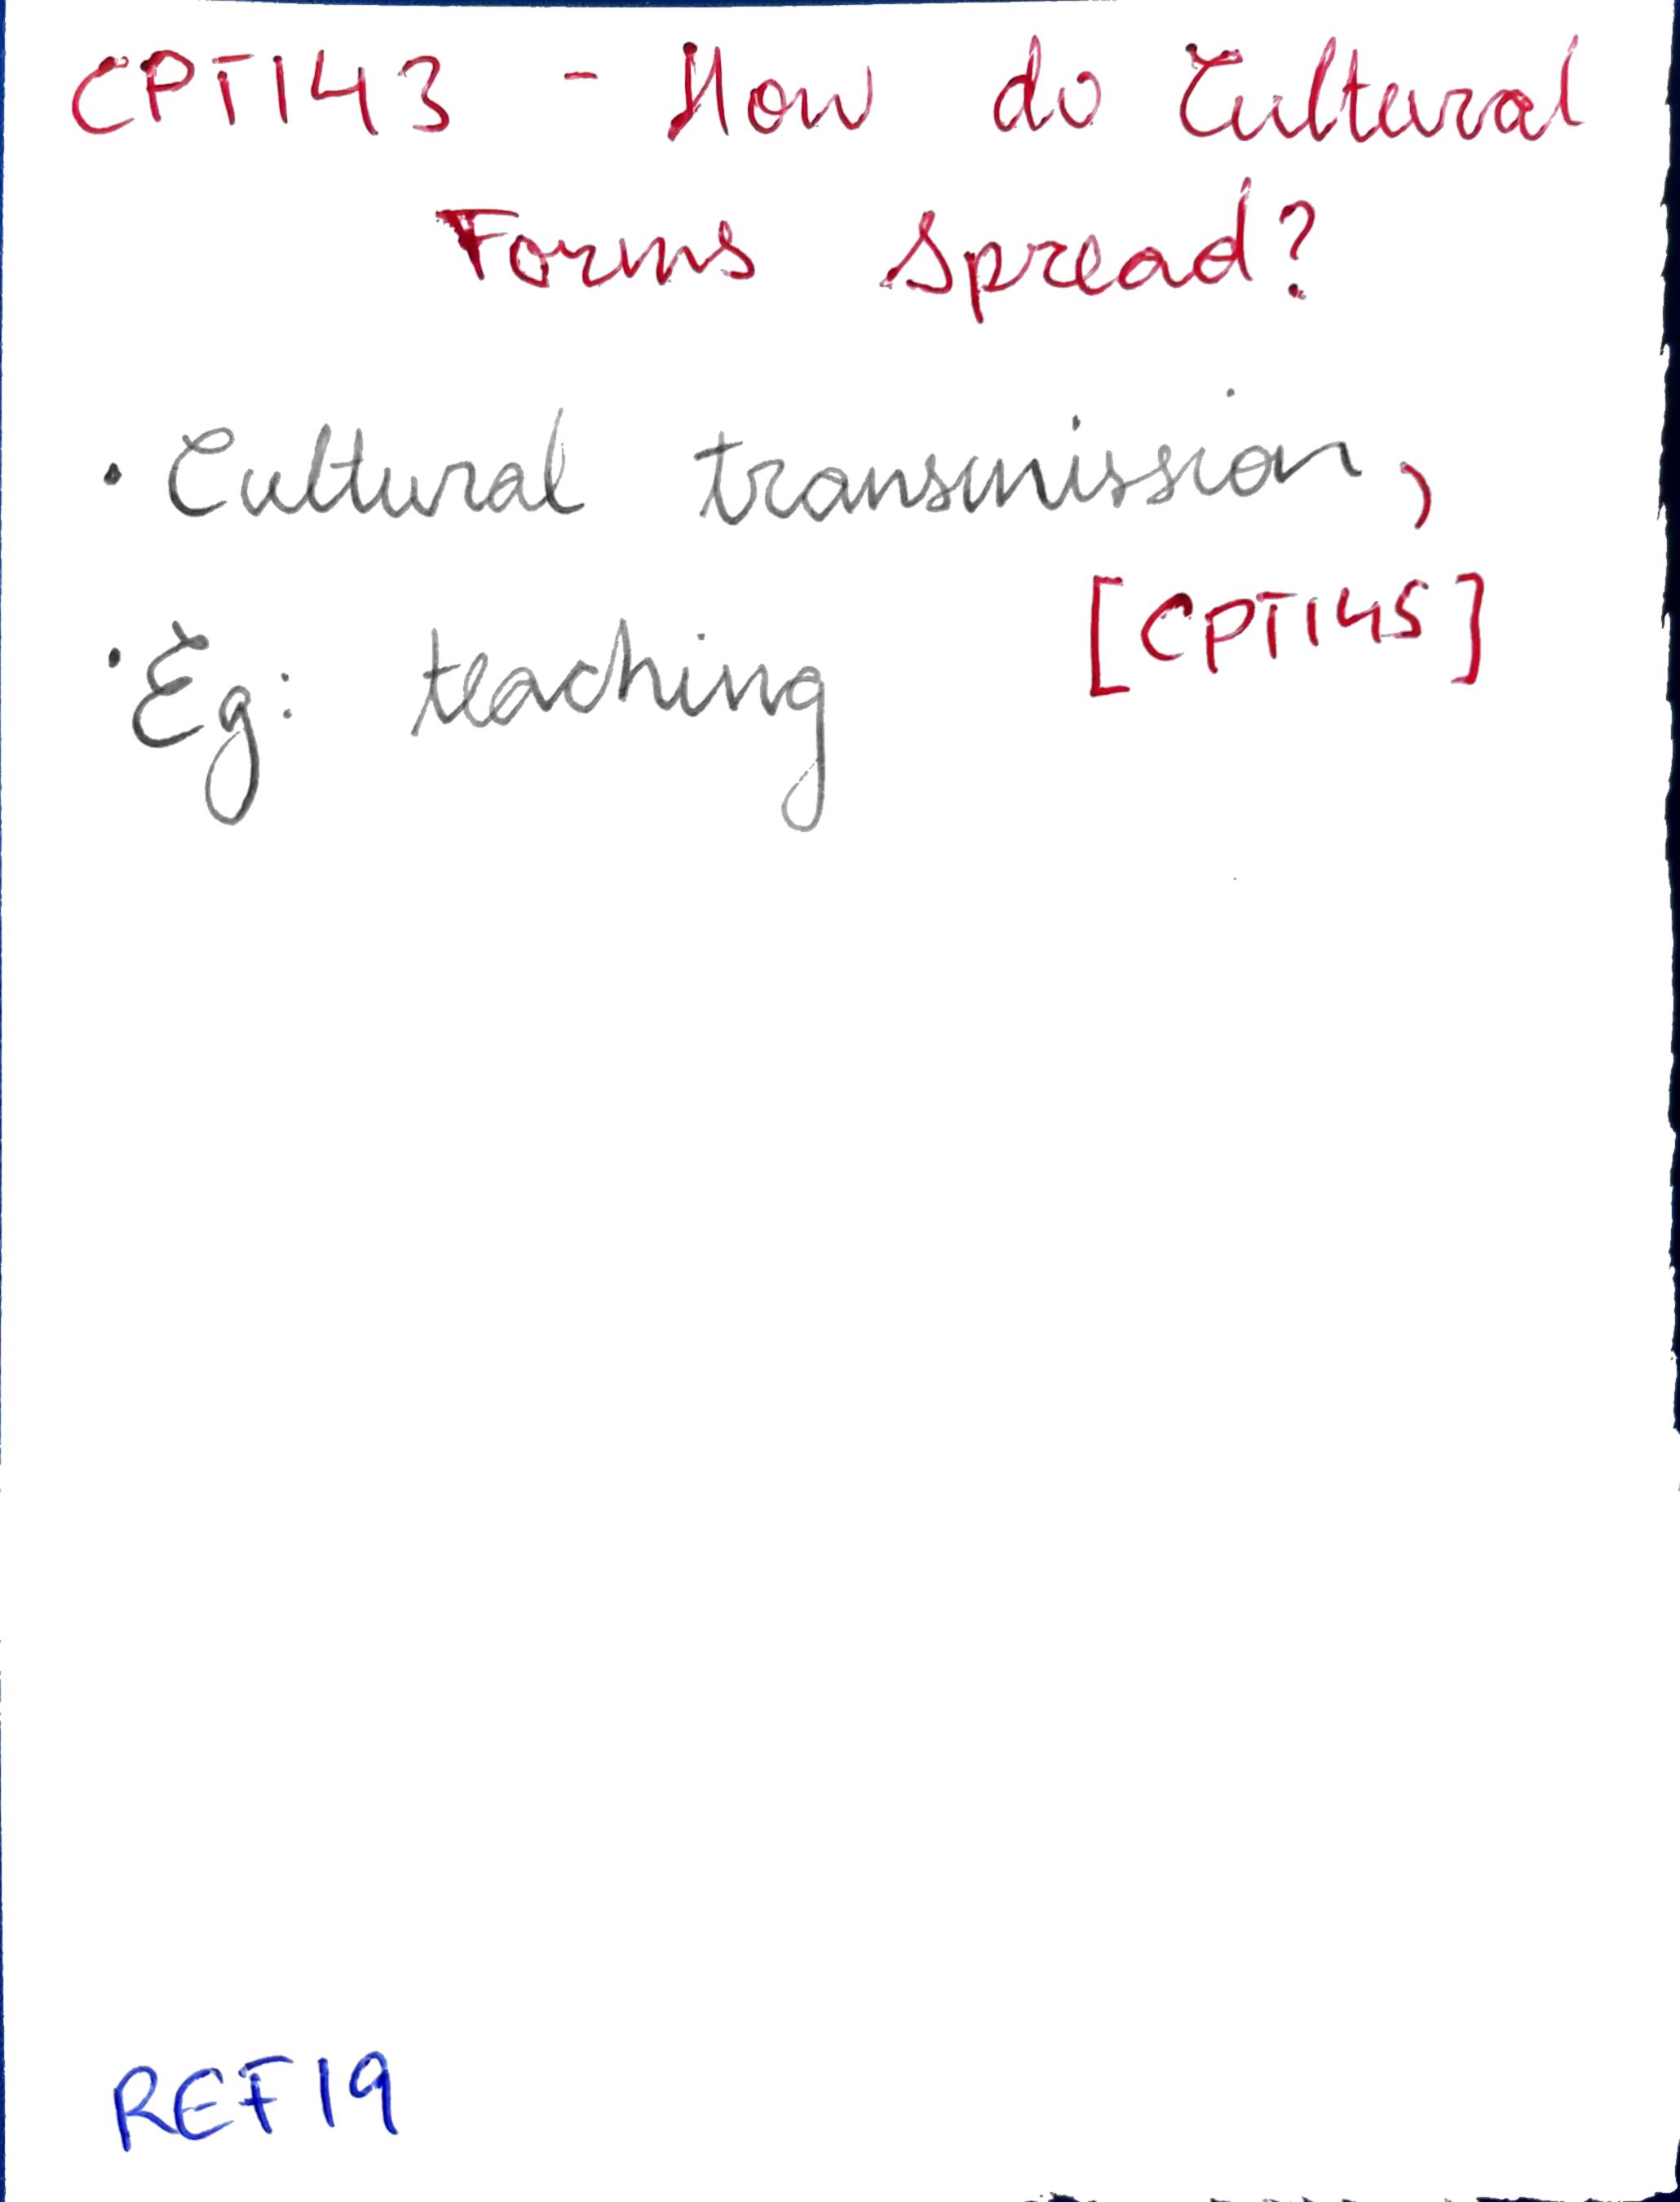 CPT143 - How do Cultural
Forms Spread?
• Cultural transmission,
[CPT145]
• Eg: teaching
REF19